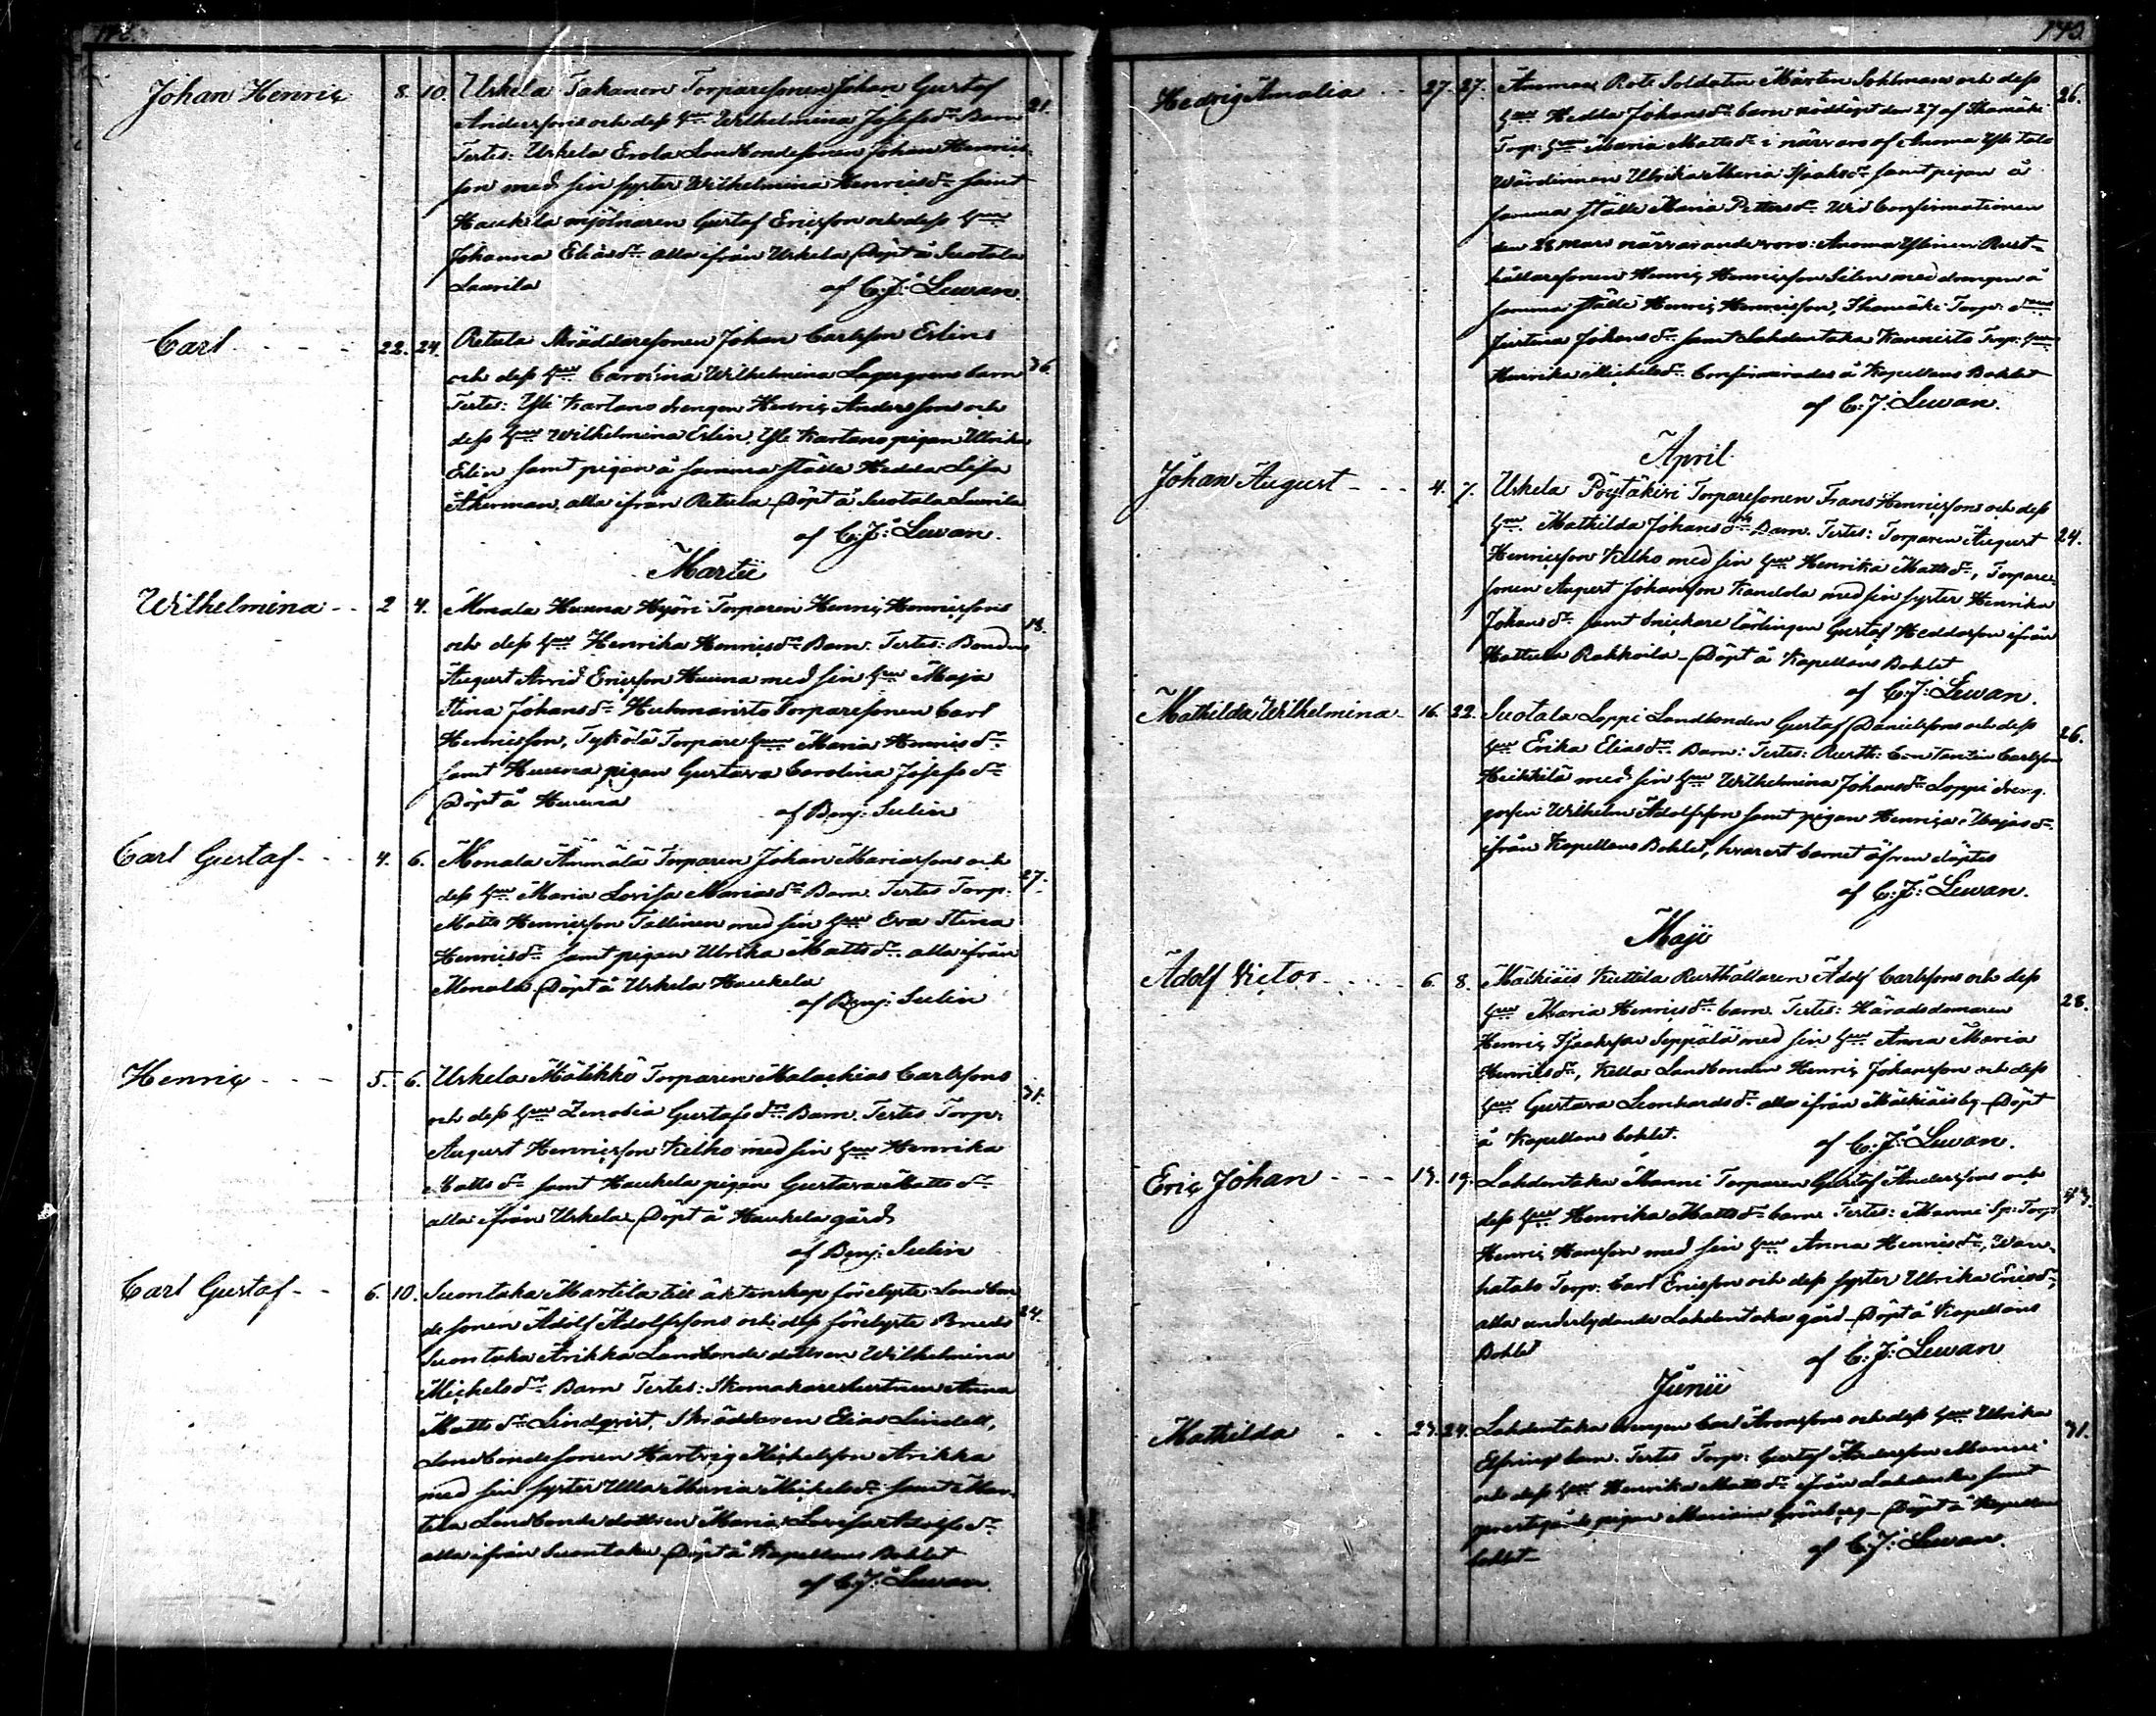 Johan Henric 8. 10. Urkela Takanen Torparesonen Johan Gustaf
Anderssons och dess hu Wilhelmina Josefsdr Barn 21.
Testes: Urkela Erola Landbondesonen Johan Henrics-
son med sin syster Wilhelmina Henricsdr samt
Haukela mjölnaren Gustaf Ericsson och dess hu
Johanna Eliasdr alla ifrån Urkela Döpt å Suotala
Laurila af C: J: Lewan.
Carl 22. 24. Retula Skräddaresonen Johan Carlsson Erlins
och dess hu Carolina Wilhelmina Lagergrens barn 36.
Testes: Yli Kartano drengen Henric Andersson och
dess hu Wilhelmina Erlin, Yli Kartano pigan Ulrika
Erlin samt pigan å samma ställe Hedda Lisa
Åkerman, alla ifrån Retula Döpt å Suotala Laurila
af C: J: Lewan.
Martii
Wilhelmina 2 4. Monala Huuna Hyöri Torparen Henric Henricssons
och dess hu Henrika Henricsdr Barn. Testes: Bonden 18.
August Arvid Ericsson Huuna med sin hu Maja
Stina Johansdr Huhmaristo Torparesonen Carl
Henricsson, Tykölä Torpare hun Maria Henricsdr
samt Huuna pigan Gustava Carolina Josefsdr
Döpt å Huuna af Benj: Selin
Carl Gustaf 4. 6. Monala Ämmälä Torparen Johan Mariassons och
dess hu Maria Lovisa Mariasdr Barn. Testes Torp: 27.
Matts Henricsson Tallinen med sin hu Eva Stina
Henricsdr samt pigan Ulrika Mattsdr alla ifrån
Monala. Döpt å Urkela Haukela
af Benj: Selin
Henric 5. 6. Urkela Mälikkö Torparen Malachias Carlssons
och dess hu Zenobia Gustafsdr Barn. Testes Torp: 31.
August Henricsson Kelho med sin hu Henrika
Mattsdr samt Haukela pigan Gustava Mattsdr
alla ifrån Urkela. Döpt å Haukela gård
af Benj: Selin
Carl Gustaf 6. 10. Suontaka Martila till äktenskap förelyste Landbon
desonen Adolf Adolfssons och dess förelyste Bruds 24.
Suontaka Arikka Landbonde dottren Wilhelmina
Michelsdr Barn Testes: Skomakare hustrun Anna
Mattsdr Lindqvist, Skräddaren Elias Lindell,
Landbondesonen Hartvig Michelsson Arikka
med sin syster Ulla Maria Michelsdr samt Mar-
tila Landbonde dottren Maria Lovisa Adolfsdr
alla ifrån Suontaka. Döpt å Kapellans Bohlet
af C: J: Lewan.
Hedvig Amalia 27. 27. Anomaa Rote Soldaten Mårten Sohlmans och dess
hu Hedda Johansdr barn nöddöpt den 27 af 26.
Torp: hu Maria Mattsdr i närvaro af Anoma Yli Talo
Wärdinnan Ulrika Maria Isaksdr samt pigan å
samma ställe Maria Pettersdr. Wid Confirmationen
den 28 mars närvarande voro: Anoma Ylinen Rust-
hållaresonen Henric Henricsson Selin med drengen å
samma ställe Henric Henricsson, Torp:
Justina Johansdr samt Lahdentaka Kannisto Torp: hu
Henrika Michelsdr Confirmerades å Kapellans Bohlet
af C: J: Lewan.
April
Johan August 4. 7. Urkela Pöytäkivi Torparesonen Frans Henricssons och dess
hu Mathilda Johansdr Barn. Testes: Torparen August 24.
Henricsson Kelho med sin hu Henrika Mattsdr, Torpare-
sonen August Johansson med sin syster Henrika
Johansdr samt Snickare lärlingen Gustaf Heddasson ifrån
Hattula Rahkoila. Döpt å Kapellans Bohlet
af C: J: Lewan.
Mathilda Wilhelmina 16. 22. Suotala Loppi Landbonden Gustaf Danielssons och dess
hu Erika Eliasdr. Barn: Testes: Rusth: Constantin Carlsson 26.
Heikkilä med sin hu Wilhelmina Johansdr Loppi dreng
gossen Wilhelm Adolfsson samt pigan Henrica Majasdr
ifrån Kapellans Bohlet, hvarest barnet äfven döptes
af C: J: Lewan.
Maji
Adolf Victor 6. 8. Mälkiäis Kuttila Rusthållaren Adolf Carlssons och dess
hu Maria Henricsdr barn. Testes: Häradsdomaren 28.
Henric Isaksson Seppälä med sin hu Anna Maria
Henricsdr, Kella Landbonden Henric Johansson och dess
hu Gustava Leonhardsdr alla ifrån Mälkiäis by. Döpt
å Kapellans bohlet. af C: J: Lewan.
Eric Johan 13. 19. Lahdentaka Manni Torparen Gustaf Anderssons och
dess hu Henrika Mattsdr barn. Testes: Manni Sp: Torp: 43.
Henric Hansson med sin hu Anna Henricsdr, Wan-
hatalo Torp: Carl Ericsson och dess syster Ulrika Ericsdr,
alla underlydande Lahdentaka gård. Döpt å Kapellans
Bohlet af C: J: Lewan
Junii
Mathilda 23. 24. Lahdentaka drengen Carl Aronssons och dess hu Ulrika
Elfvings barn. Testes Torp: Gustaf Andersson Manni 31.
och dess hu Henrika Mattsdr ifrån Lahdentaka samt
pigan Mariana Grönberg. Döpt å Kapellans
bohlet af C: J: Lewan.